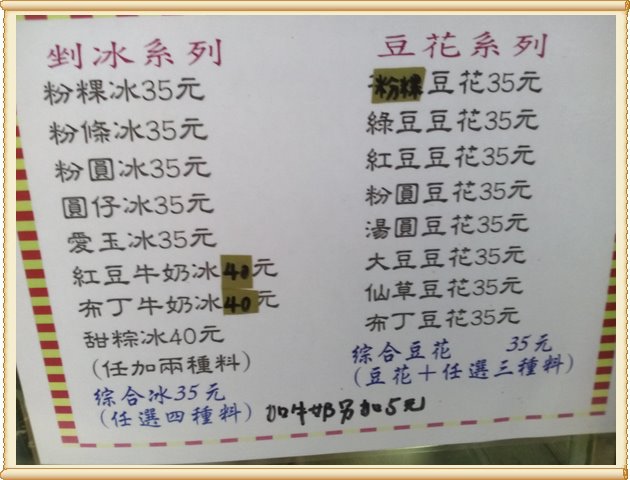 剉冰系列
粉粿冰35元
粉條冰35元
粉圓冰35元
圓仔冰35元
愛玉冰35元
紅豆牛奶冰40元
布丁牛奶冰40元
甜粽冰40元
(任加兩種料)
綜合冰35元
(任選四種料)
豆花系列
粉粿豆花35元
綠豆豆花35元
紅豆豆花35元
粉圓豆花35元
湯圓豆花35元
大豆豆花35元
仙草豆花35元
布丁豆花35元
綜合豆花 35元
(豆花+任選三種料)
加牛奶另加5元